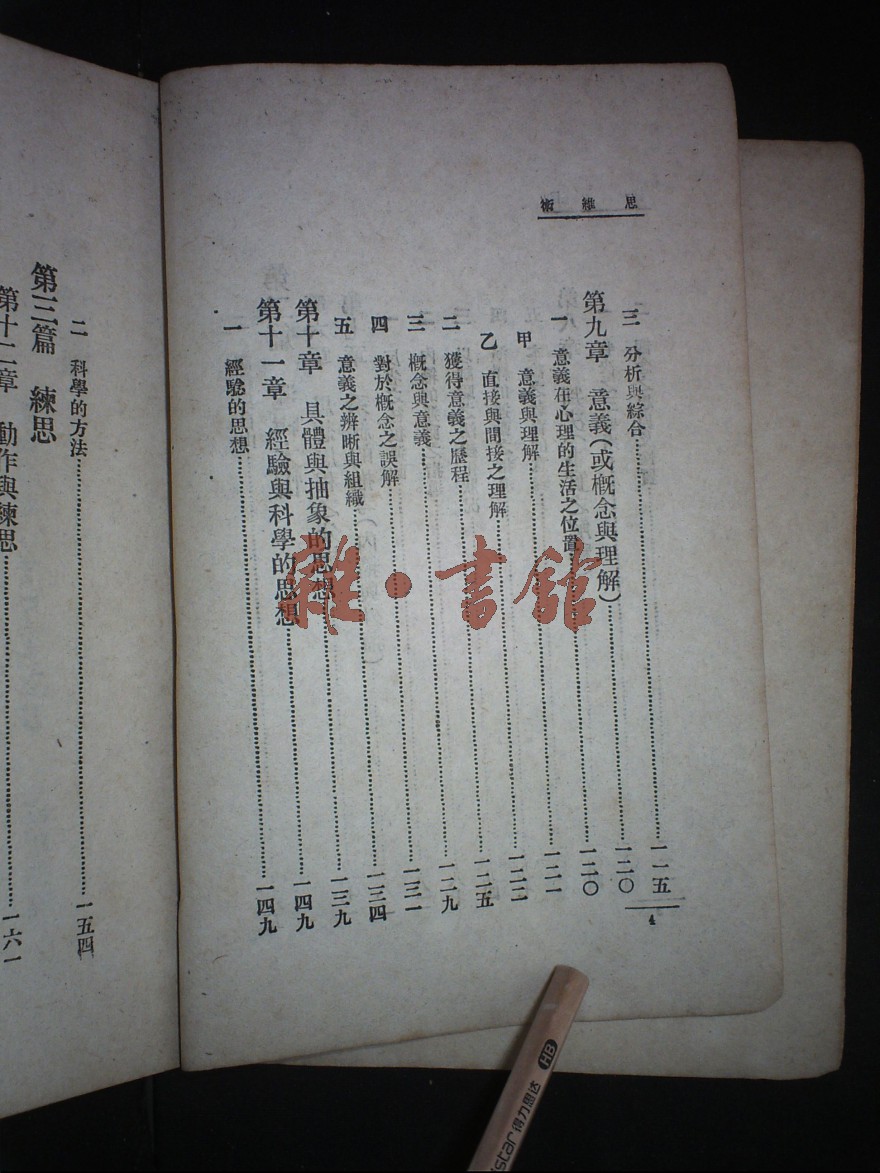 思維術
三 分析與綜合……一一五
第九章 意義(或概念與理解)……一二〇
一 意義在心理的生活之位置……一二〇
甲 意義與理解……一二一
乙 直接與間接之理解……一二二
二 獲得意義之歷程……一二五
三 概念與意義……一二九
四 對於概念之誤解……一三一
五 意義之辨晰與組織……一三四
第十章 具體與抽象的思想……一三九
第十一章 經驗與科學的思想……一四九
一 經驗的思想……一四九
4
二 科學的方法……一五四
第三篇 練思
第十二章 動作與練思……一六一
雜·書館
star 得力思达 HB